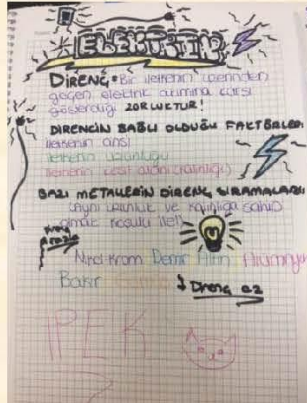 ELEKTRİK
DİRENÇ: Bir iletkenin üzerinden
geçen elektrik akımına karşı
gösterdiği ZORLUKTUR!
DİRENCİN BAĞLI OLDUĞU FAKTÖRLER:
iletkenin cinsi
iletkenin uzunluğu
iletkenin kesit alanı (kalınlığı)
BAZI METALLERİN DİRENÇ SIRAMALARI
(Aynı uzunluk ve kalınlığa sahip
olmak koşulu ile!)
Direnç
fazla
Nikel-Krom Demir Altın Alüminyum
Bakır
Direnç az
İPEK